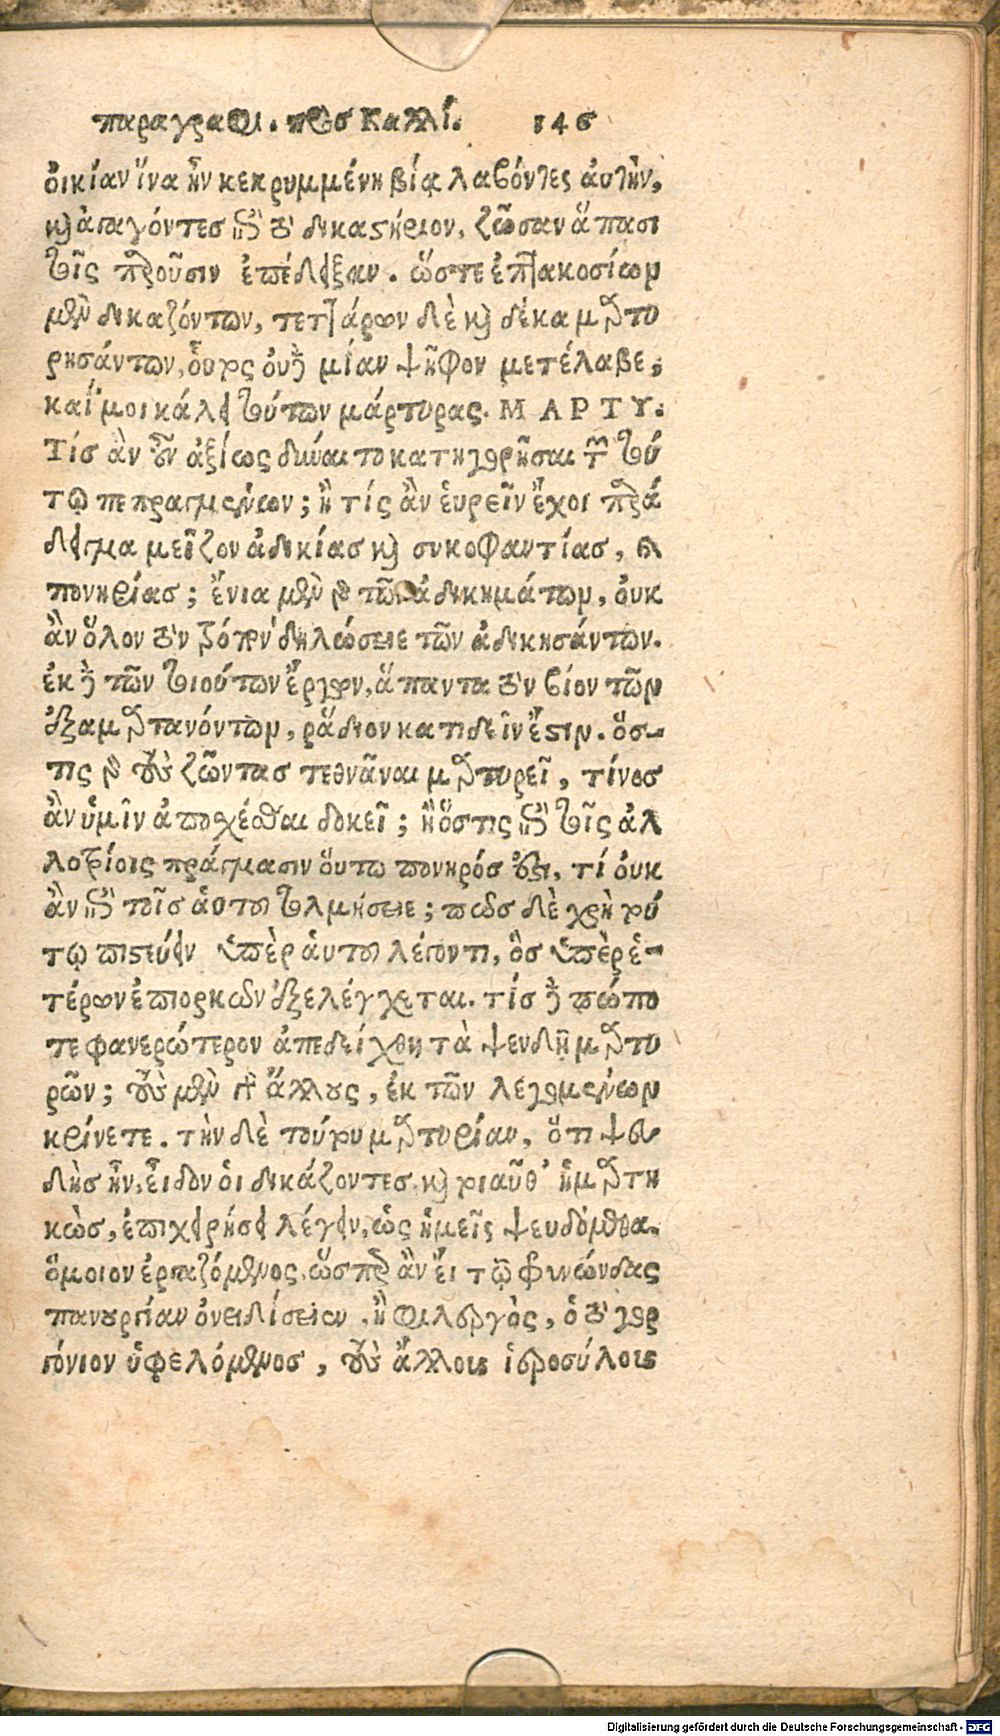 παραγραφι. πρὸσ Καλλί. 146
ὀικίαν ἵνα ἦν κεκρυμμένη βίᾳ λαβόντες ἀυτὴν,
καὶ ἀπαγόντεσ ἐπὶ τὸ δικαστήριον, ζῶσαν ἅπασι
τοῖς παροῦσιν ἐπέδειξαν. ὥστε ἑπτακοσίων
μὲν δικαζόντων, τεττάρων δὲ καὶ δέκα μαρτυ
ρησάντων, ὅυτος ὀυδὲ μίαν ψῆφον μετέλαβε;
καί μοι κάλει τούτων μάρτυρας. ΜΑΡΤΥ.
Τίσ ἂν οὖν ἀξίως δύναιτο κατηγορῆσαι τῶν τού
τῳ πεπραγμένων; ἢ τίς ἂν ἑυρεῖν ἔχοι παρά
δειγμα μεῖζον ἀδικίασ καὶ συκοφαντίασ, καὶ
πονηρίας; ἔνια μὲν γὰρ τῶν ἀδικημάτων, ὀυκ
ἂν ὅλον τὸν τρόπον δηλώσειε τῶν ἀδικησάντων.
ἐκ δὲ τῶν τοιούτων ἔργων, ἅπαντα τὸν βίον τῶν
ἐξαμαρτανόντων, ῥᾴδιον κατιδεῖν ἔστιν. ὅσ-
τις γὰρ τοὺς ζῶντασ τεθνᾶναι μαρτυρεῖ, τίνοσ
ἂν ὑμῖν ἀποσχέσθαι δοκεῖ; ἢ ὅστις ἐπὶ τοῖς ἀλ
λοτρίοις πράγμασιν ὅυτω πονηρόσ ἐστι, τί ὀυκ
ἂν ἐπὶ τοῖσ ἁυτοῦ τολμήσειε; πῶσ δὲ χρὴ τού
τῳ πιστεύειν ὑπὲρ ἁυτοῦ λέγοντι, ὃσ ὑπὲρ ἑ-
τέρων ἐπιορκῶν ἐξελέγχεται. τίσ δὲ πώπο
τε φανερώτερον ἀπεδείχθη τὰ ψευδῆ μαρτυ
ρῶν; τοὺς μὲν γὰρ ἄλλους, ἐκ τῶν λεγομένων
κρίνετε. τὴν δὲ τούτου μαρτυρίαν, ὅτι ψευ
δὴσ ἦν, εἶδον ὁι δικάζοντεσ. καὶ τοιαῦθ' ἡμαρτη
κὼσ, ἐπιχειρήσει λέγειν, ὡς ἡμεῖς ψευδόμεθα.
ὅμοιον ἐργαζόμενος, ὥσπερ ἂν ἔι τῳ Φρυνώνδας
πανουργίαν ὀνειδίσειεν, ἢ Φιλουργὸς, ὁ τὸ γορ
γόνιον ὑφελόμενοσ, τοὺς ἄλλους ἱεροσύλους